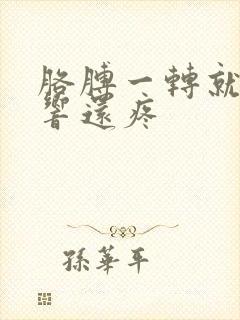 胳膊一轉就
響還疼
孫華平